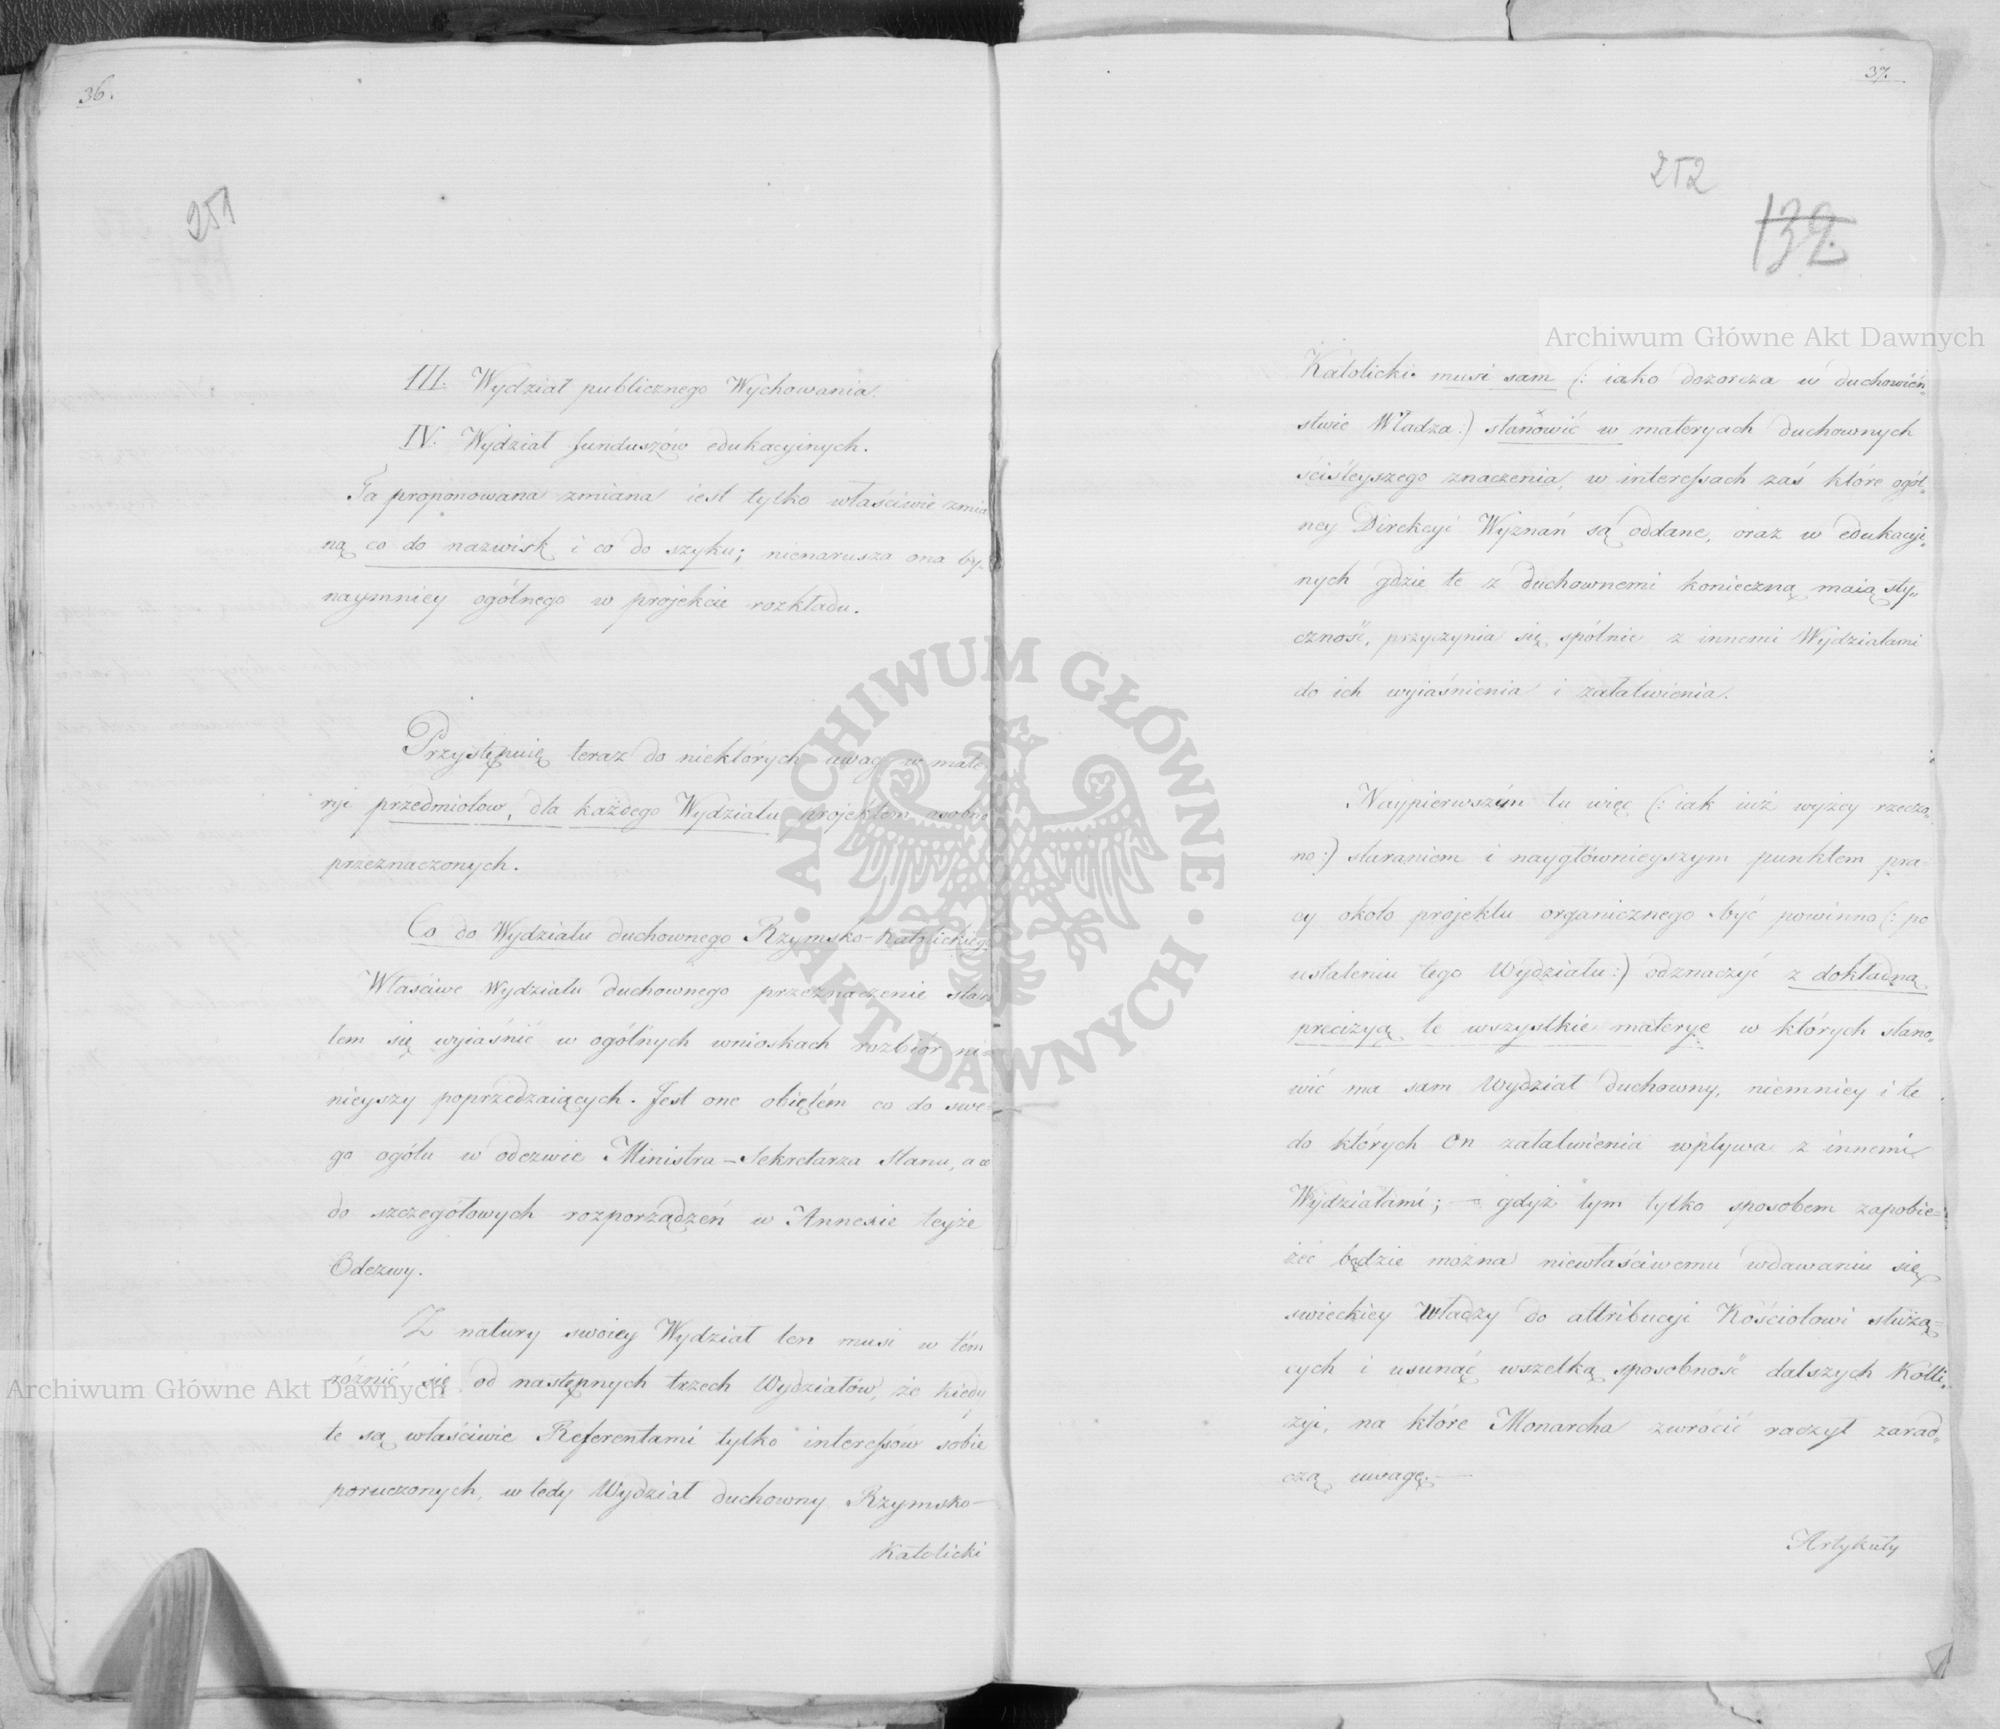 36.
251
III. Wydział publicznego Wychowania.
IV. Wydział funduszów edukacyinych.
Ta proponowana zmiana iest tylko właściwie zmia
ną co do nazwisk i co do szyku; nienarusza ona by-
naymniey ogólnego w projekcie rozkładu.
Przystępuię teraz do niektórych uwag w mate-
ryi przedmiotow, dla każdego Wydziału projektem osobno
przeznaczonych.
Co do Wydziału duchownego Rzymsko-Katolickiego
Właściwe Wydziału duchownego przeznaczenie
tem się wyiaśnić w ogólnych wnioskach rozbiór
nieyszy poprzedzaiących. Jest one obiętém co do swe-
go ogółu w odezwie Ministra-Sekretarza Stanu, a co
do szczegółowych rozporządzeń w Annexie teyże
Odezwy.
Z natury swoiey Wydział ten musi w tém
różnić się od następnych trzech Wydziałów, że kiedy
te są właściwie Referentami tylko interessow sobie
poruczonych, wtedy Wydział duchowny Rzymsko-
Katolicki
37.
252
132.
Katolicki musi sam (: iako dozorcza w duchowień-
stwie Władza:) stanowić w materyach duchownych
ściśleyszego znaczenia, w interessach zaś które ogól-
ney Direkcyi Wyznań są oddane, oraz w edukacyi-
nych gdzie te z duchownemi konieczną maią sty-
czność, przyczynia się spólnie z innemi Wydziałami
do ich wyiaśnienia i załatwienia.
Naypierwszém tu więc (: iak iuż wyżey rzeczo-
no:) staraniem i naygłównieyszym punktem pra-
cy około projektu organicznego być powinno (: po
ustaleniu tego Wydziału:) odznaczyć z dokładną
precizyą te wszystkie materye w których stano-
wić ma sam Wydział duchowny, niemniey i te
do których on załatwienia wpływa z innemi
Wydziałami; — gdyż tym tylko sposobem zapobie-
żéc będzie można niewłaściwemu wdawaniu się
swieckiey Władzy do attribucyi Kościołowi służą-
cych i usunąć wszelką sposobność dalszych Kolli-
zyi, na które Monarcha zwrócić raczył zarad-
czą uwagę. —
Artykuły
Archiwum Główne Akt Dawnych
Archiwum Główne Akt Dawnych
ARCHIWUM GŁÓWNE
AKT DAWNYCH